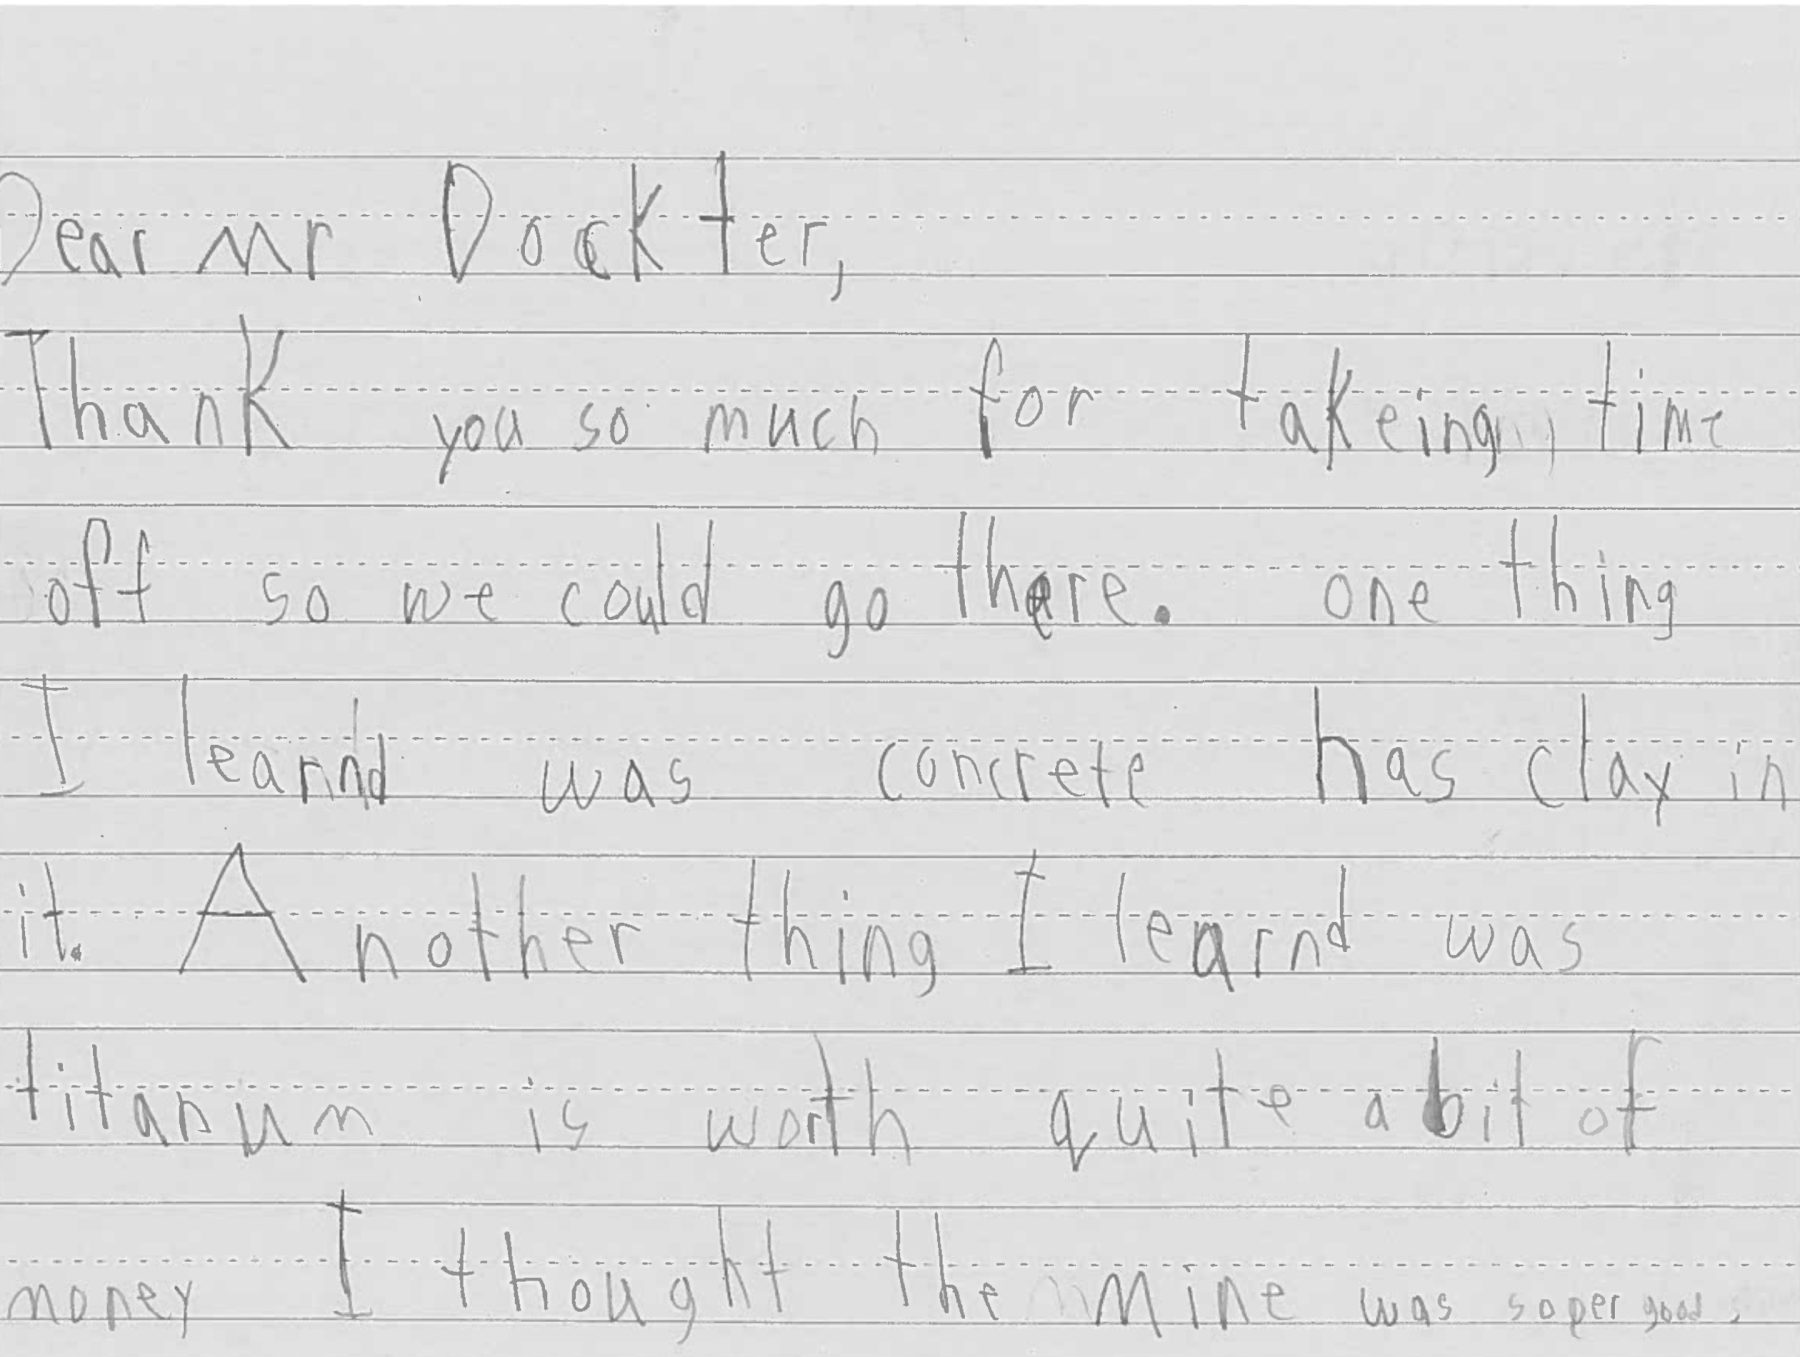 Dear Mr Dockter,
Thank you so much for takeing time
off so we could go there. one thing
I learnd was concrete has clay in
it. Another thing I learnd was
titanum is worth quite a bit of
money I thought the mine was soper good